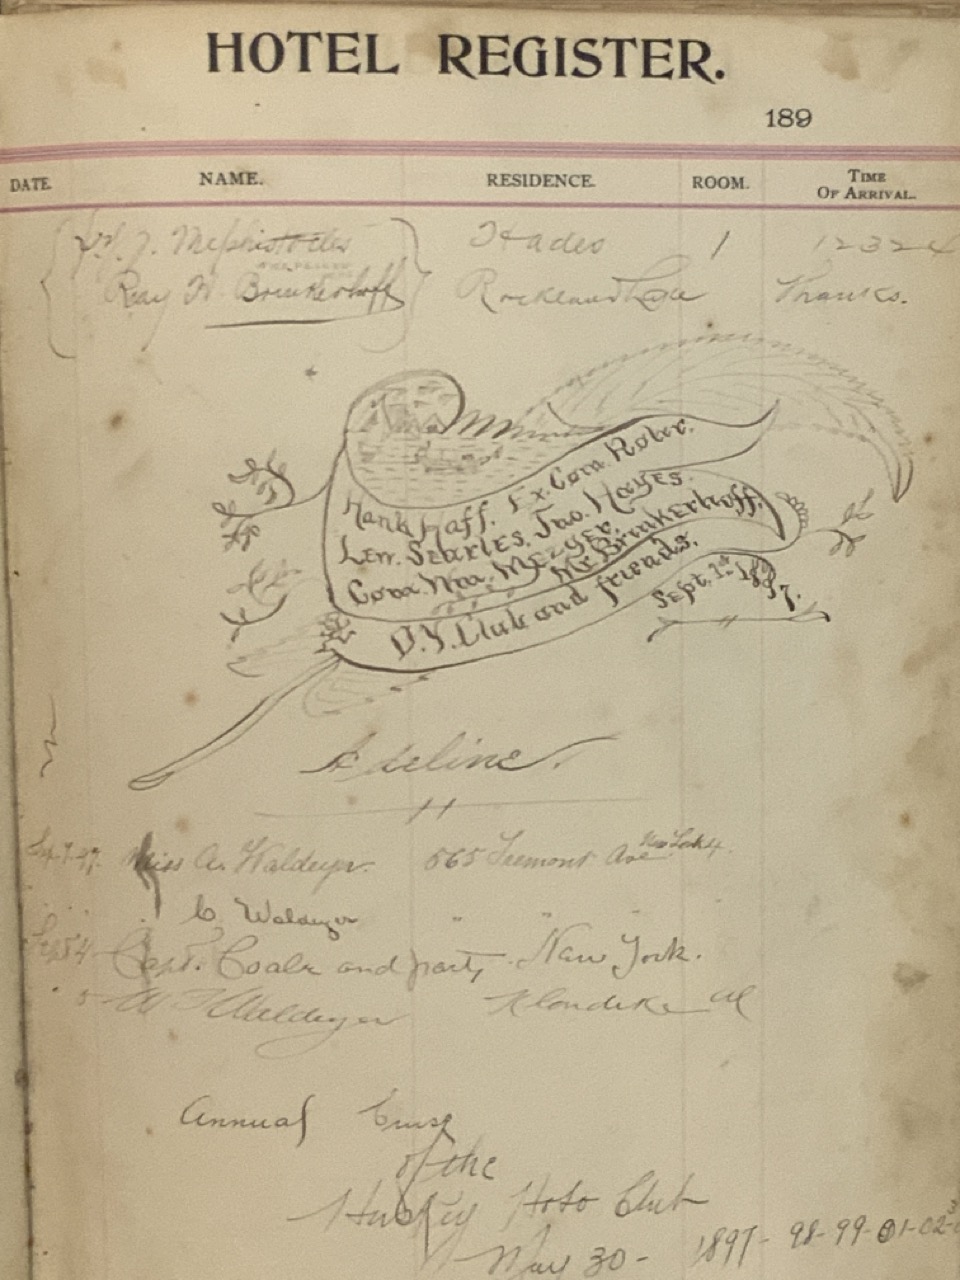 HOTEL REGISTER.
189
DATE. NAME. RESIDENCE. ROOM. TIME OF ARRIVAL.
J. Mephistoles Hades 1 12324
Ray H Brinkerhoff Rockland Lake Thanks.
Hank Haff. Ex. Com. Rober.
Lem. Searles. Jno. Hayes.
Com. Wm. Metzger. Mr. Brinkerhoff.
D. Y. Club and friends.
Sept. 1st 1897.
Adeline.
Miss A. Waldeyer. 565 Tremont Ave New York
C. Waldeyer " " "
Sept 4 Capt. Coalr and party New York.
5 Waldeyer Klondike Al
Annual Cruise
of the
Hoto Club
May 30 - 1897 - 98-99-01-02-